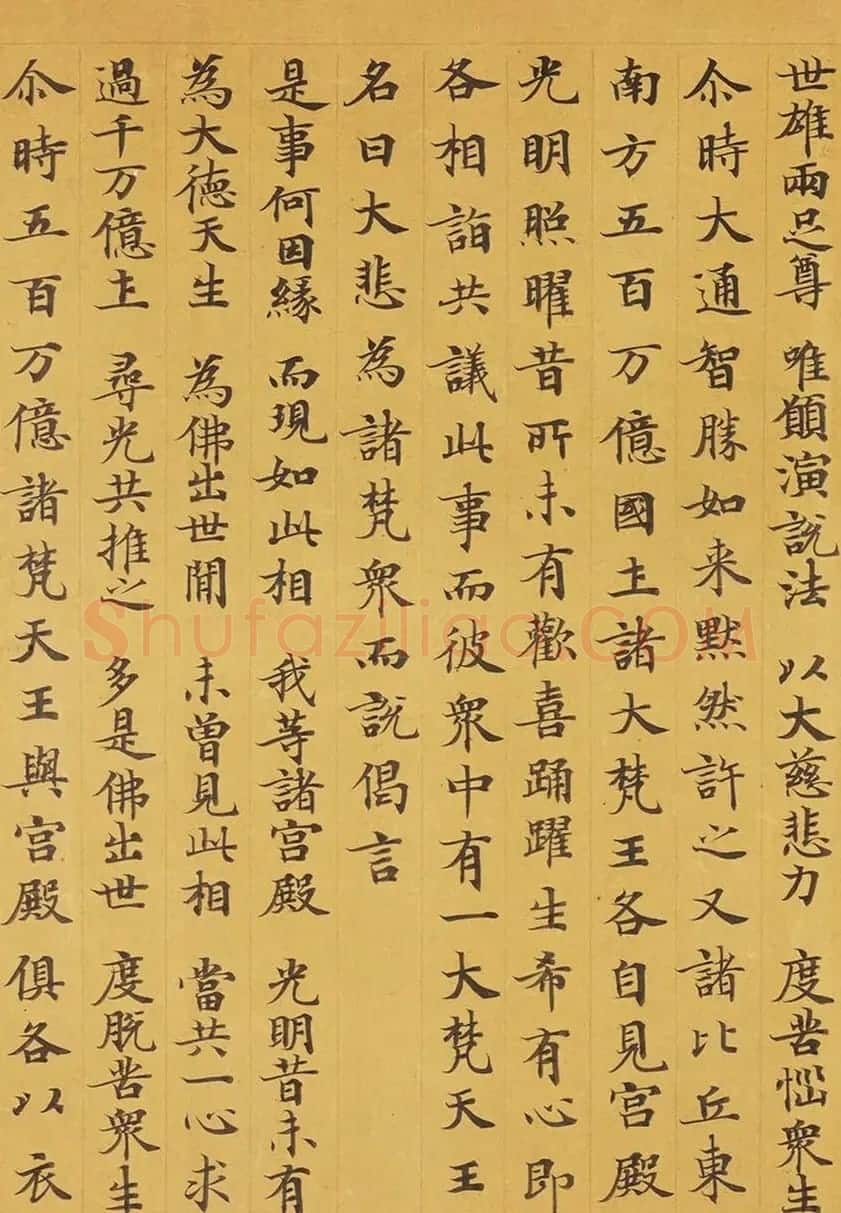 世雄兩足尊 唯願演說法 以大慈悲力 度苦惱衆生
尒時大通智勝如来默然許之又諸比丘東
南方五百万億國土諸大梵王各自見宮殿
光明照曜昔所未有歡喜踊躍生希有心即
各相詣共議此事而彼衆中有一大梵天王
名曰大悲為諸梵衆而說偈言
是事何因緣 而現如此相 我等諸宮殿 光明昔未有
為大德天生 為佛出世閒 未曾見此相 當共一心求
過千万億土 尋光共推之 多是佛出世 度脫苦衆生
尒時五百万億諸梵天王與宮殿俱各以衣
Shufaziliao.COM